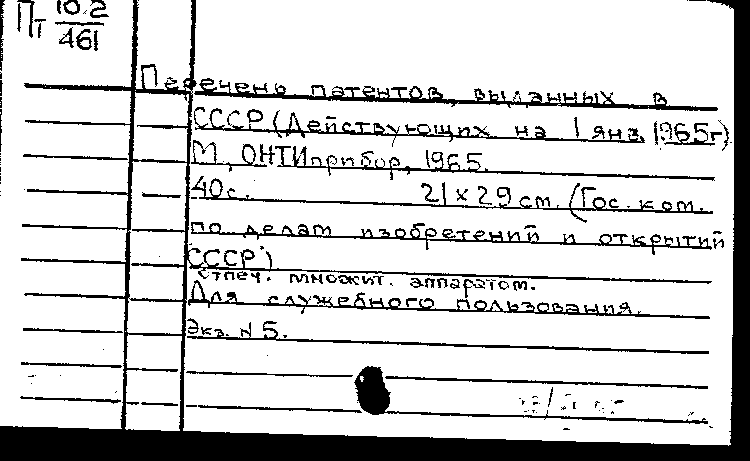 Пт 10.2
461
Перечень патентов, выданных в
СССР (Действующих на 1 янв. 1965г)
М., ОНТИприбор, 1965.
40с. 21 × 29 см. (Гос. ком.
по делам изобретений и открытий
СССР)
Отпеч. множит. аппаратом.
Для служебного пользования.
Экз. N 5.